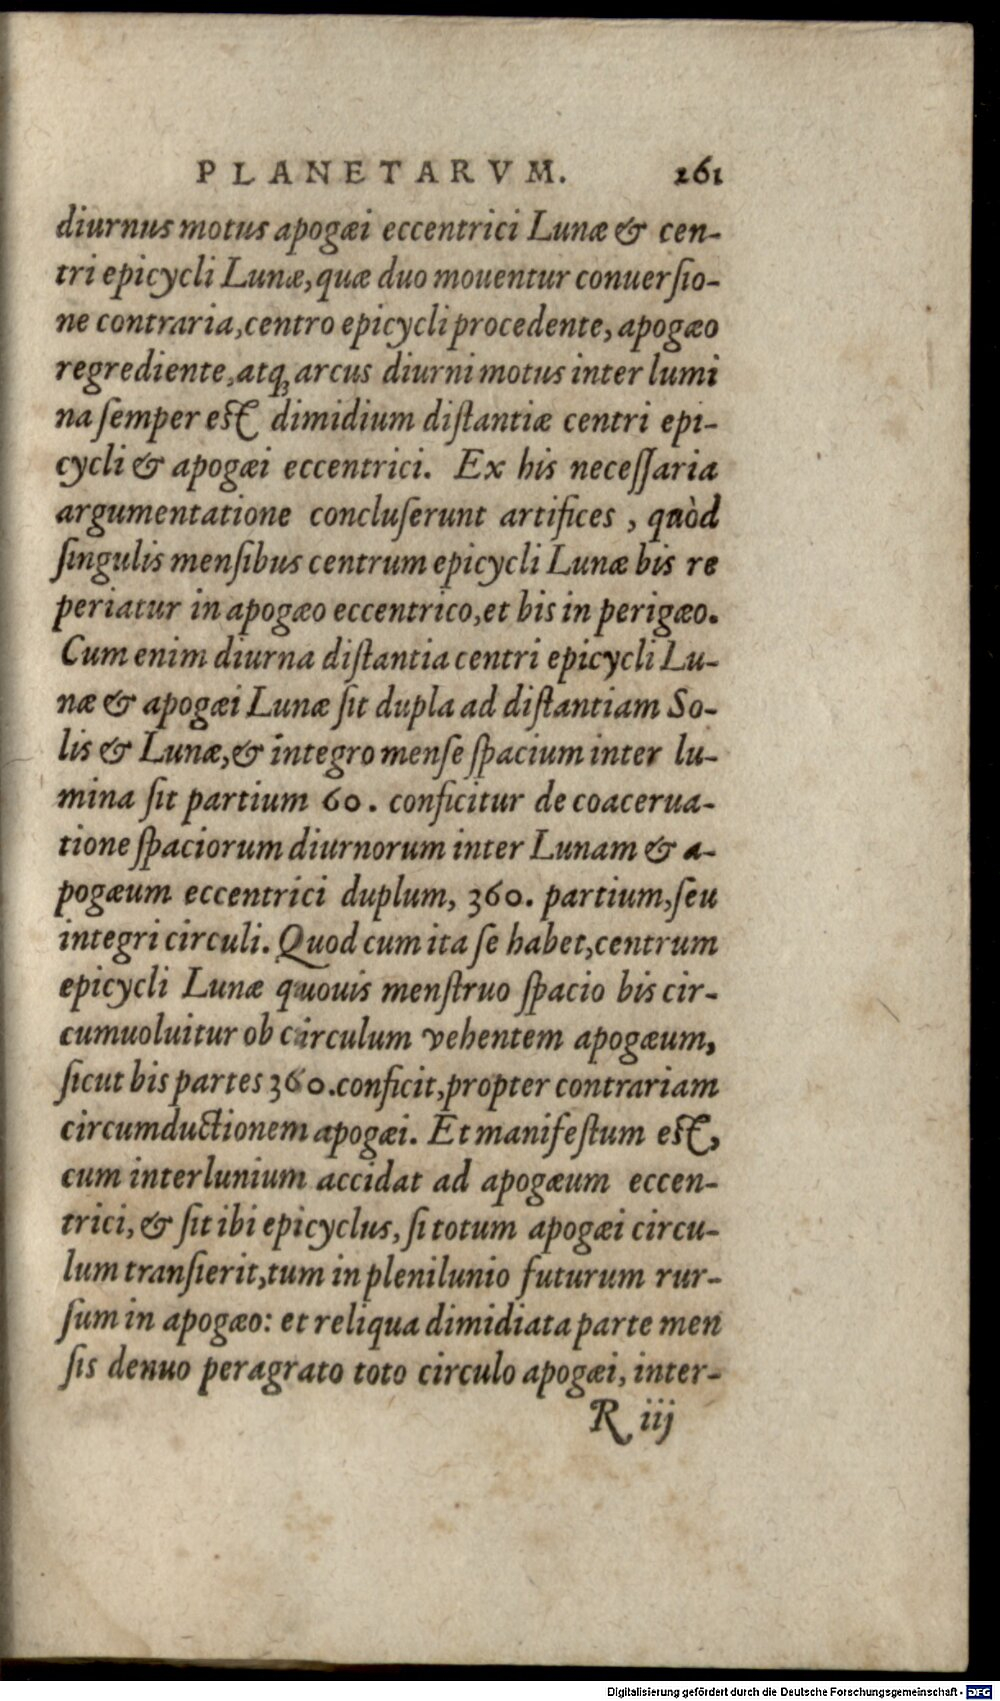 PLANETARVM. 261
diurnus motus apogæi eccentrici Lunæ & cen-
tri epicycli Lunæ, quæ duo mouentur conuersio-
ne contraria, centro epicycli procedente, apogæo
regrediente, atq; arcus diurni motus inter lumi
na semper est dimidium distantiæ centri epi-
cycli & apogæi eccentrici. Ex his necessaria
argumentatione concluserunt artifices, quòd
singulis mensibus centrum epicycli Lunæ bis re
periatur in apogæo eccentrico, et bis in perigæo.
Cum enim diurna distantia centri epicycli Lu-
næ & apogæi Lunæ sit dupla ad distantiam So-
lis & Lunæ, & integro mense spacium inter lu-
mina sit partium 60. conficitur de coacerua-
tione spaciorum diurnorum inter Lunam & a-
pogæum eccentrici duplum, 360. partium, seu
integri circuli. Quod cum ita se habet, centrum
epicycli Lunæ quouis menstruo spacio bis cir-
cumuoluitur ob circulum vehentem apogæum,
sicut bis partes 360. conficit, propter contrariam
circumductionem apogæi. Et manifestum est,
cum interlunium accidat ad apogæum eccen-
trici, & sit ibi epicyclus, si totum apogæi circu-
lum transierit, tum in plenilunio futurum rur-
sum in apogæo: et reliqua dimidiata parte men
sis denuo peragrato toto circulo apogæi, inter-
R iij
Digitalisierung gefördert durch die Deutsche Forschungsgemeinschaft - DFG